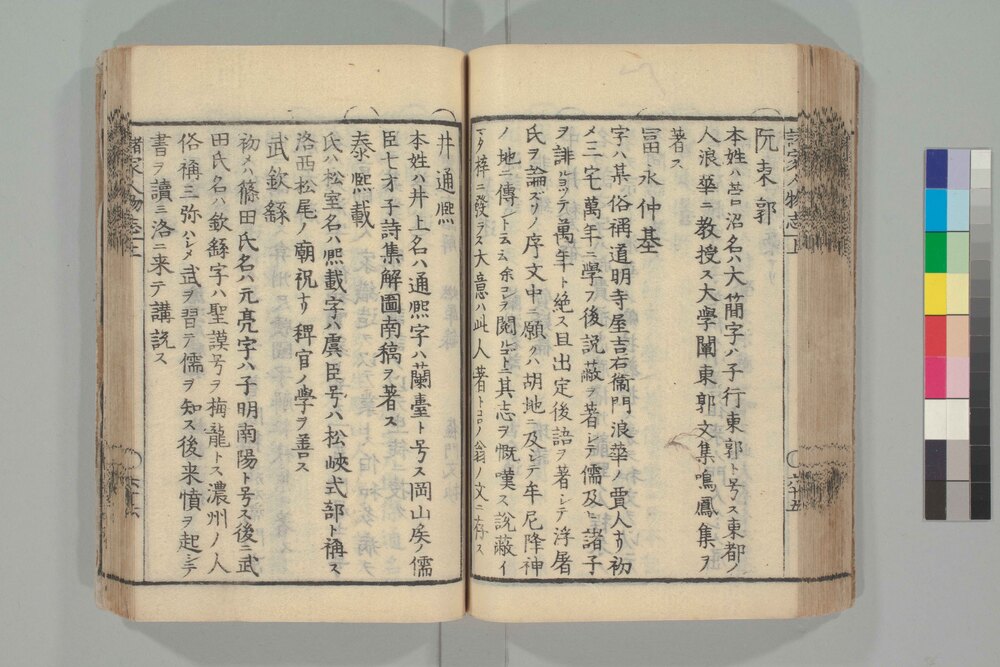 阮東郭
本姓ハ菅沼名ハ大簡字ハ子行東郭ト号ス東都ノ
人浪華ニ教授ス大学闡東郭文集鳴鳳集ヲ
著ス
冨永仲基
字ハ某俗稱道明寺屋吉右衞門浪華ノ賈人ナリ初
メ三宅萬年ニ學フ後説蔽ヲ著シテ儒及ヒ諸子
ヲ誹ルヨツテ萬年ト絶ス且出定後語ヲ著シテ浮屠
氏ヲ論ズソノ序文中ニ願クハ胡地ニ及シテ牟尼降神
ノ地ニ傳ント云云余コレヲ閲ルゴトニ其志ヲ慨嘆ス説蔽イ
マタ梓ニ發ラス大意ハ此人著トコロノ翁ノ文ニ存ス
井通熈
本姓ハ井上名ハ通熈字ハ蘭臺ト号ス岡山矦ノ儒
臣七才子詩集解圖南稿ヲ著ス
泰熈載
氏ハ松室名ハ熈載字ハ虞臣号ハ松峽式部ト稱ス
洛西松尾ノ廟祝ナリ稗官ノ學ヲ善ス
武欽繇
初メハ篠田氏名ハ元亮字ハ子明南陽ト号ス後ニ武
田氏名ハ欽繇字ハ聖謨号ヲ梅龍トス濃州ノ人
俗稱三弥ハシメ武ヲ習テ儒ヲ知ス後来憤ヲ起シテ
書ヲ讀ミ洛ニ来テ講説ス